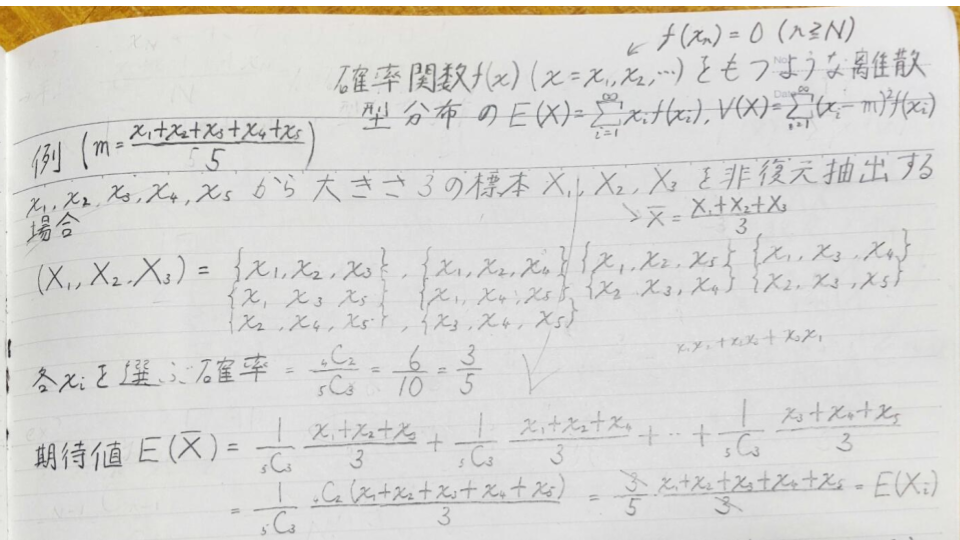 f(xₙ) = 0 (n≧N)
確率関数f(x) (x = x₁, x₂, …) をもつような離散
型分布の E(X) = ∑_{i=1}^{∞} xᵢ f(xᵢ), V(X) = ∑_{i=1}^{∞} (xᵢ − m)² f(xᵢ)
例 (m = (x₁+x₂+x₃+x₄+x₅)/5)
x₁, x₂, x₃, x₄, x₅ から大きさ3の標本 X₁, X₂, X₃ を非復元抽出する
場合 X̄ = (X₁+X₂+X₃)/3
(X₁, X₂, X₃) = {x₁, x₂, x₃}, {x₁, x₂, x₄} {x₁, x₂, x₅} {x₁, x₃, x₄}
{x₁ x₃ x₅} {x₁, x₄, x₅} {x₂ x₃, x₄} {x₂, x₃, x₅}
{x₂, x₄, x₅}, {x₃, x₄, x₅}
各xᵢを選ぶ確率 = ₄C₂/₅C₃ = 6/10 = 3/5
期待値 E(X̄) = 1/₅C₃ (x₁+x₂+x₃)/3 + 1/₅C₃ (x₁+x₂+x₄)/3 + ‥ + 1/₅C₃ (x₃+x₄+x₅)/3
= 1/₅C₃ ₄C₂(x₁+x₂+x₃+x₄+x₅)/3 = 3/5 (x₁+x₂+x₃+x₄+x₅)/3 = E(Xᵢ)